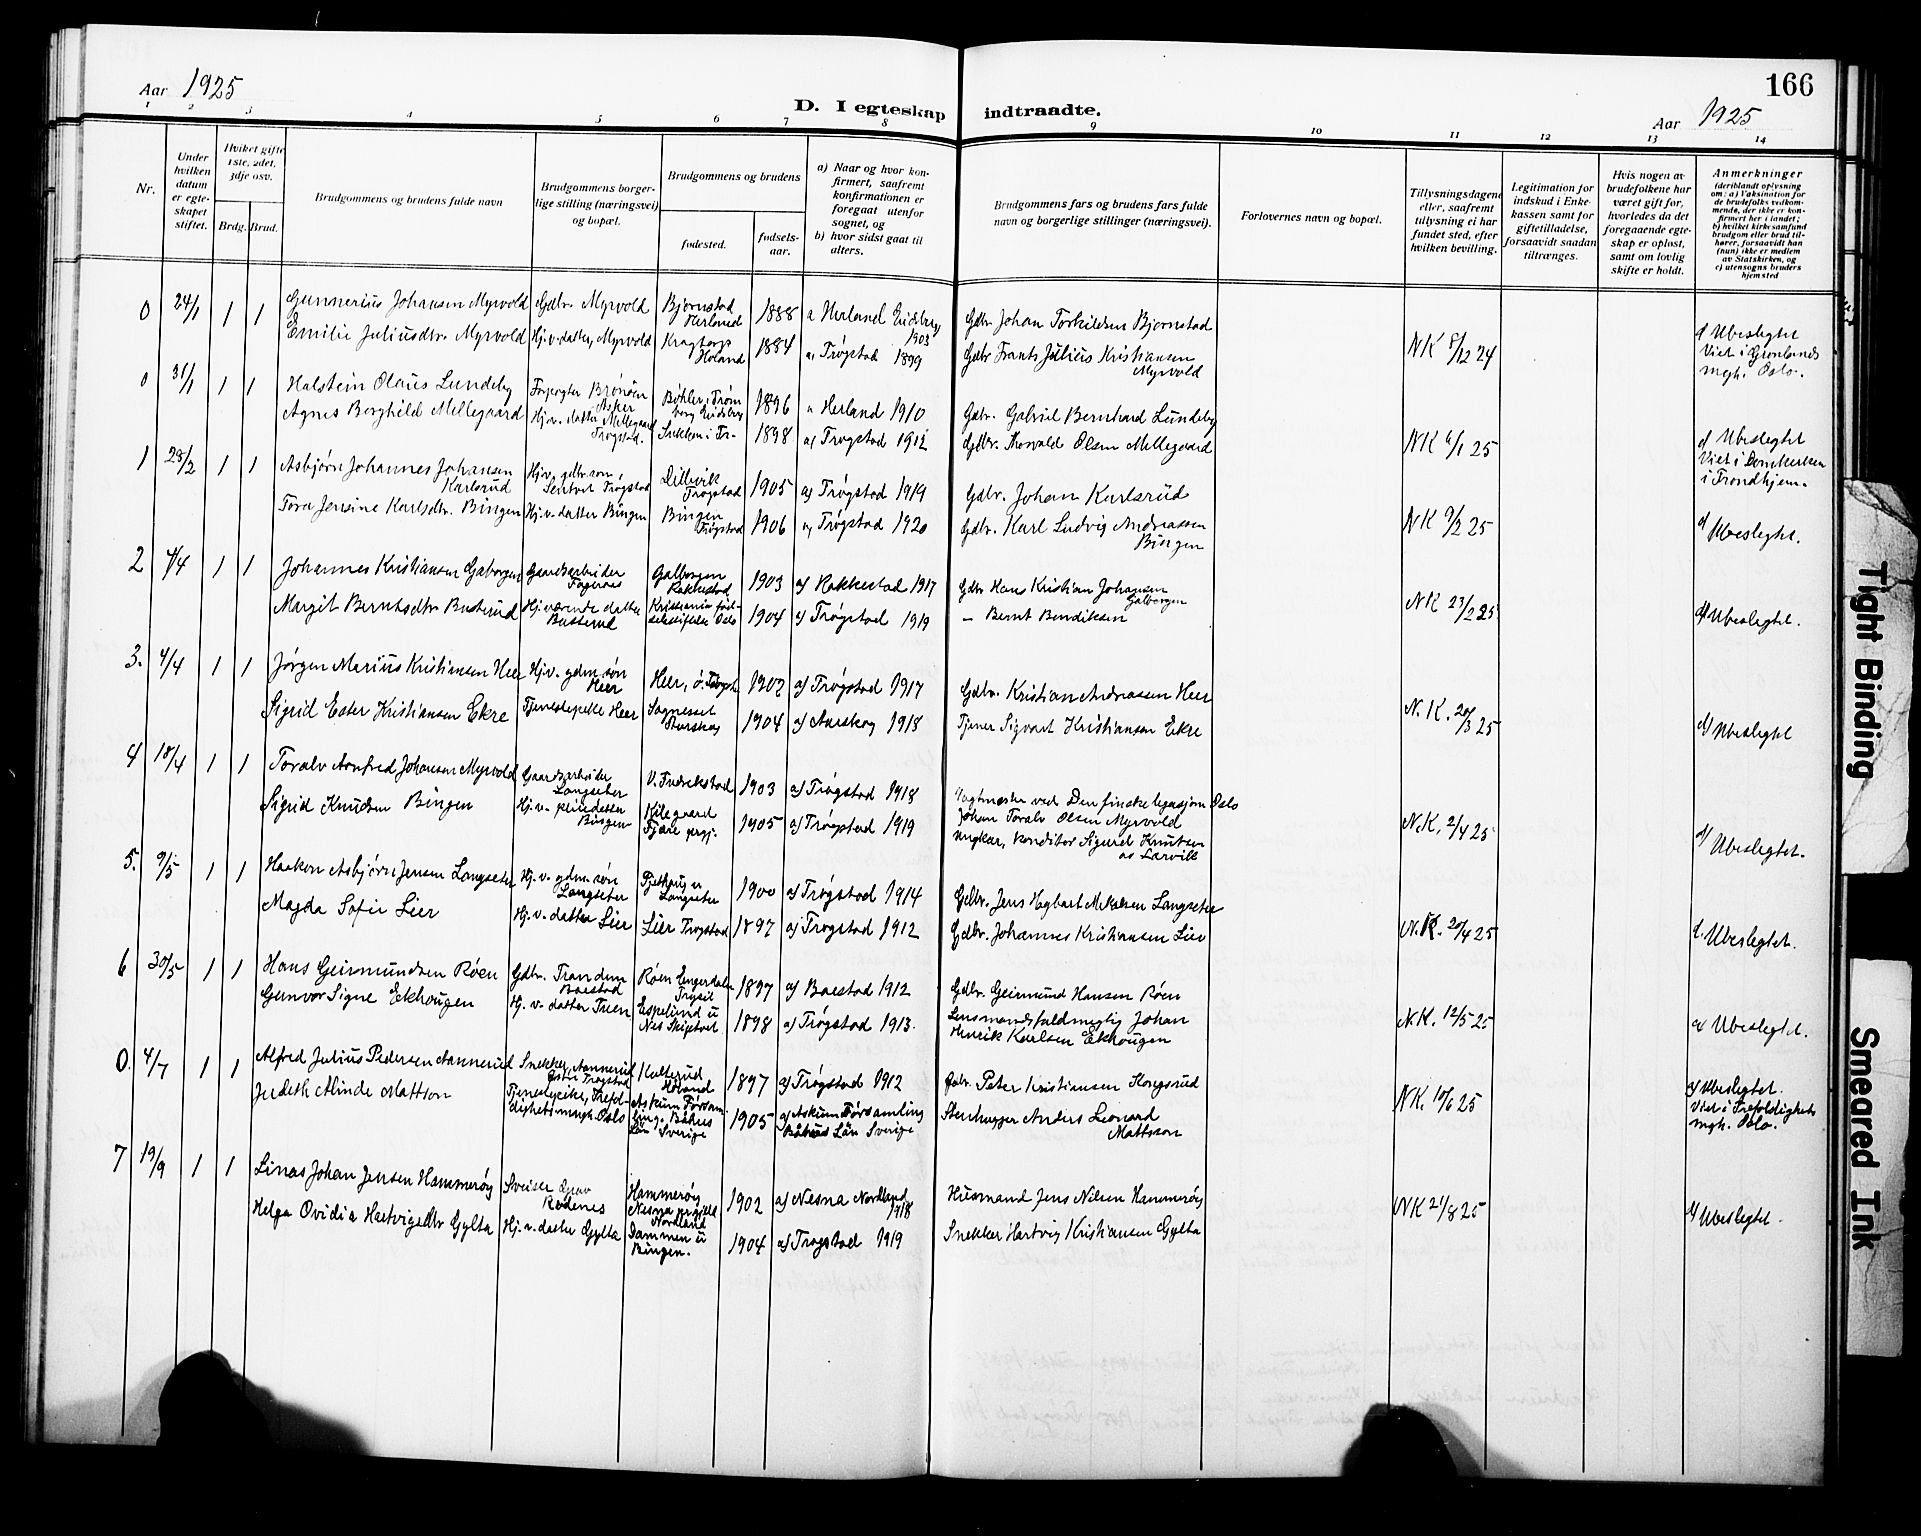 Aar 1925
166
D. I egteskap indtraadte.
Aar 1925
1 2 3 4 5 6 7 8 9 10 11 12 13 14
Nr.
Under hvilken datum er egteskapet stiftet.
Hvilket gifte 1ste, 2det, 3dje osv.
Brdg. Brud.
Brudgommens og brudens fulde navn
Brudgommens borgerlige stilling (næringsvei) og bopæl.
Brudgommens og brudens
fødested.
fødselsaar.
a) Naar og hvor konfirmert, saafremt konfirmationen er foregaat utenfor sognet, og
b) hvor sidst gaat til alters.
Brudgommens fars og brudens fars fulde navn og borgerlige stillinger (næringsvei).
Forlovernes navn og bopæl.
Tillysningsdagene eller, saafremt tillysning ei har fundet sted, efter hvilken bevilling.
Legitimation for indskud i Enkekassen samt for giftetilladelse, forsaavidt saadan tiltrænges.
Hvis nogen av brudefolkene har været gift før, hvorledes da det foregaaende egteskap er opløst, samt om lovlig skifte er holdt.
Anmerkninger
(deriblandt oplysning om: a) Vaksination for de brudefolks vedkommende, der ikke er konfirmert her i landet; b) hvilket kirkesamfund brudgom eller brud tilhører, forsaavidt han (hun) ikke er medlem av Statskirken, og c) utensogns bruders hjemsted
0 24/1 1 1 Gunnerius Johansen Myrvold Gdbr. Myrvold Bjørnstad Herland 1888 a Herland Eidsberg 1903 Gdbr. Johan Torkildsen Bjørnstad
Emilie Juliusdtr. Myrvold Hj.v. datter, Myrvold Kragtorp Høland 1884 a) Trøgstad 1899 Gdbr Frants Julius Kristiansen Myrvold NK 8/12 24 d) Ubeslegtet Viet i Grønlands mgh. Oslo.
0 31/1 1 1 Halstein Olaus Lundeby Forpagter Brønøen Asker Bøhler, Trømborg Eidsberg 1896 a Herland 1910 Gdbr. Gabriel Bernhard Lundeby
Agnes Borghild Mellegaard Hj.v. datter Mellegaard Trøgstad. i Tr. 1898 a) Trøgstad 1912 Gdbr. Olsen Mellegaard NK 6/1 25 d) Ubeslegtet Viet i Domkirken i Trondhjem.
1 28/2 1 1 Asbjørn Johannes Johansen Karlsrud Hj.v. gdbr. søn, Trøgstad Dillevik Trøgstad 1905 a) Trøgstad 1919 Gdbr. Johan Karlsrud
Tora Jensine Karlsdtr. Bingen Hj.v. datter Bingen Bingen Trøgstad 1906 a) Trøgstad 1920 Gdbr. Karl Ludvig Andreassen Bingen NK 9/2 25 d) Ubeslegtet.
2 4/4 1 1 Johannes Kristiansen Gaborgen Gaardsarbeider Fagernes Galborgen Rakkestad 1903 a) Rakkestad 1917 Gdbr Hans Kristian Johansen Galborgen
Margit Berntsdtr Busterud Hjemværende datter Busterud Kristiania fødselsstiftelse Oslo 1904 a) Trøgstad 1919 – Bernt Bendiksen NK 23/2 25 d) Ubeslegtet.
3. 4/4 1 1 Jørgen Marius Kristiansen Heer Hj.v. gdm. søn Heer Heer, ø. Trøgst. 1902 a) Trøgstad 1917 Gdbr. Kristian Andreasen Heer
Sigrid Ester Kristiansen Ekre Tjenestepike Heer Aurskog 1904 a) Aurskog 1918 Tjener Sigvart Kristiansen Ekre N.K. 20/3 25 d) Ubeslegtet
4 18/4 1 1 Toralv Arnfred Johansen Myrvold Gaardsarbeider Langseter V. Fredrikstad 1903 a) Trøgstad 1918 Vagtmester ved Den finske legasjon Oslo Johan Toralv Olsen Myrvold
Sigrid Knudsen Bingen Hj.v. pleiedatter Bingen Kilegaard Fjære prgj. 1905 a) Trøgstad 1919 Ungkar, konditor Sigurd Knutsen av Larvik N.K. 2/4 25 d) Ubeslegtet.
5. 9/5 1 1 Haakon Asbjørn Jensen Langseter Hj.v. gdm. søn Langseter u Langseter 1900 a) Trøgstad 1914 Gdbr. Jens Hagbart Langseter
Magda Sofie Lier Hj.v. datter Lier Lier Trøgstad 1897 a) Trøgstad 1912 Gdbr. Johannes Kristiansen Lier N.K. 20/4 25 d. Ubeslegtet.
6 30/5 1 1 Hans Geirmundsen Røen Gdbr. Trandem Baastad Røen Engerdalen Trysil 1897 a) Baastad 1912 Gdbr. Geirmund Hansen Røen
Gunvor Signe Eckhougen Hj.v. datter Tuen Espelund u Nes Skiptvet 1898 a) Trøgstad 1913. Lensmandsfuldmegtig Johan Henrik Karlsen Ekhougen N.K. 12/5 25 d) Ubeslegtet.
0. 4/7 1 1 Alfred Julius Pedersen Aannerud Snekker, Aannerud Østre Trøgstad Kulterud Høland 1897 a) Trøgstad 1912 Gdbr. Peter Kristiansen Kongsrud
Judith Alinde Mattson Tjenestepike, Trefoldighetsmngh. Oslo Askum Församling, Båhus Län Sverige 1905 a) Askum Församling Båhus Län Sverige Stenhugger Anders Leonard Mattsson NK. 10/6 25 d) Ubeslegtet. Viet i Trefoldighets mgh. Oslo.
7 19/9 1 1 Linas Johan Jensen Hammerøy Sveiser Rødenes Hammerøy Nesna prgjeld Nordland 1902 a) Nesna Nordland 1918 Husmand Jens Nilsen Hammerøy
Helga Ovidia Hartvigsdtr Gylta Hj.v. datter Gylta Dammen u Bingen. 1904 a) Trøgstad 1919 Snekker Hartvig Kristiansen Gylta NK 21/8 25 d) Ubeslegtet.
Tight Binding
Smeared Ink